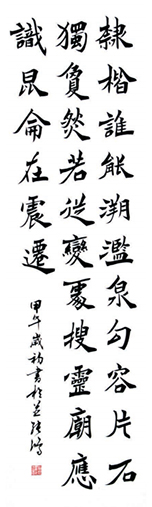 隸楷誰能溯濫泉勾容片石
獨夐然若從變處搜靈廟應
識昆侖在震遷
甲午歲初書於